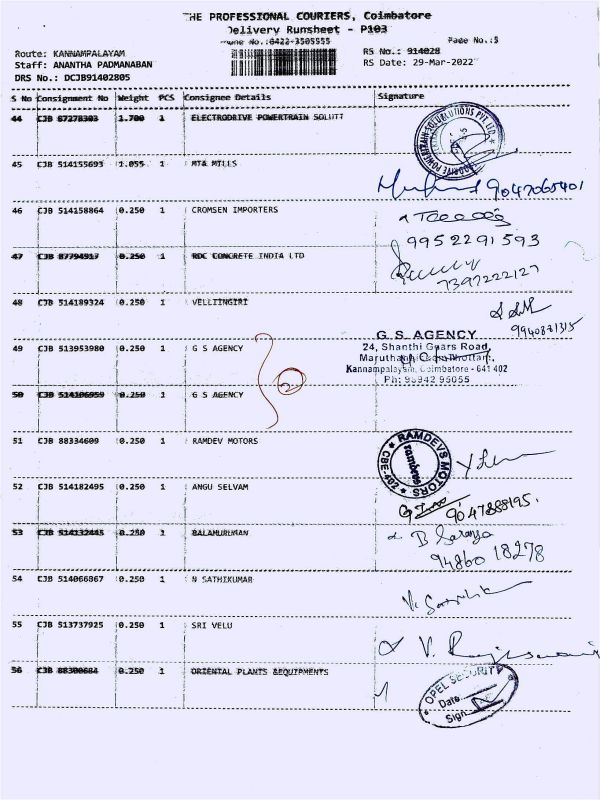 THE PROFESSIONAL COURIERS, Coimbatore
Delivery Runsheet - P103
Phone No.:0422-3505555
Page No.:5
Route: KANNAMPALAYAM
RS No.: 914028
Staff: ANANTHA PADMANABAN
RS Date: 29-Mar-2022
DRS No.: DCJB91402805
S No Consignment No Weight PCS Consignee Details Signature
44 CJB 67278303 1.700 1 ELECTRODRIVE POWERTRAIN SOLUTI
45 CJB 514155693 1.055 1 MTA MILLS
9047065401
46 CJB 514158864 0.250 1 CROMSEN IMPORTERS
9952291593
47 CJB 87794917 0.250 1 RDC CONCRETE INDIA LTD
7397222127
48 CJB 514189324 0.250 1 VELLIINGIRI
9940831315
49 CJB 513953980 0.250 1 G S AGENCY
G.S. AGENCY
24, Shanthi Gears Road,
Kannampalayam, Coimbatore - 641 402
Ph: 98942 95055
2
50 CJB 514106959 0.250 1 G S AGENCY
51 CJB 88334609 0.250 1 RAMDEV MOTORS
RAMDEVS MOTORS
CBE-402
ramdevs
52 CJB 514182495 0.250 1 ANGU SELVAM
9047888195.
53 CJB 514132445 0.250 1 BALAMURUKAN
B Saranya
94860 18278
54 CJB 514066867 0.250 1 N SATHIKUMAR
55 CJB 513737925 0.250 1 SRI VELU
56 CJB 88300684 0.250 1 ORIENTAL PLANTS &EQUIPMENTS
OPEL SECURITY
Date
Sign